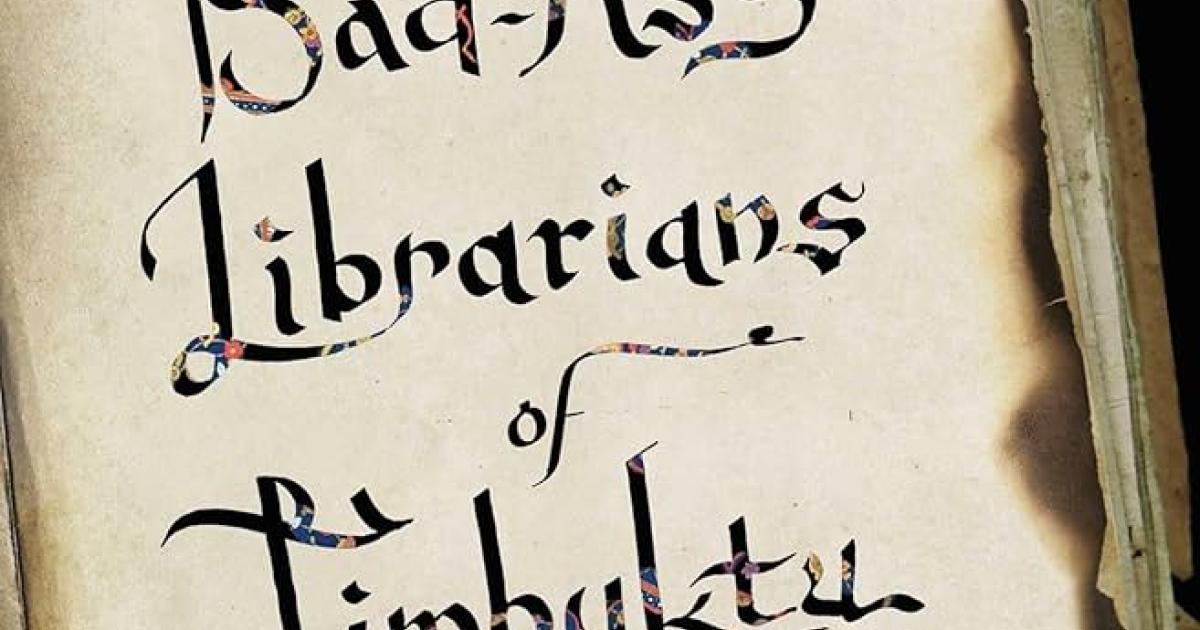 Bad-Ass
Librarians
of
Timbuktu